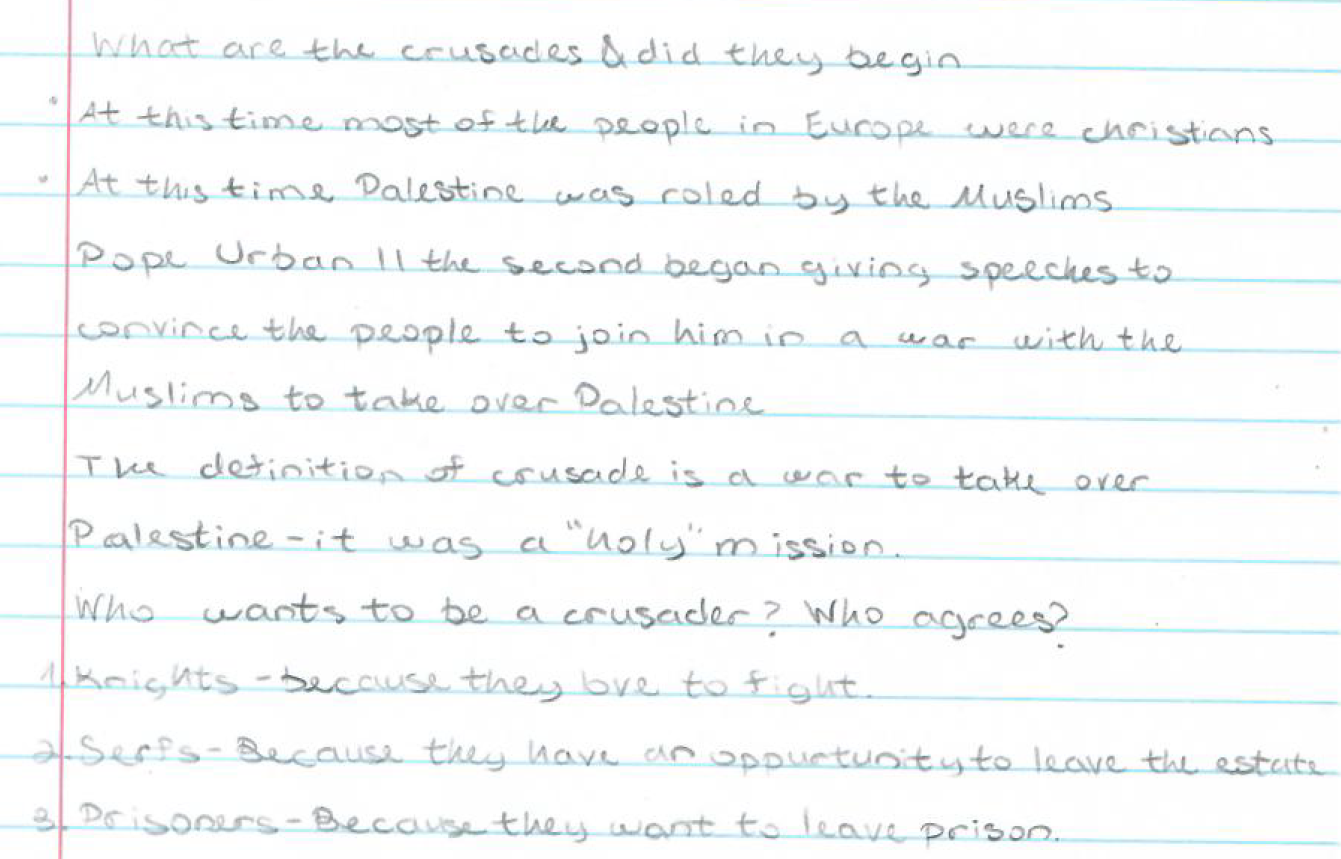 What are the crusades & did they begin
• At this time most of the people in Europe were christians
• At this time Palestine was roled by the Muslims
Pope Urban II the second began giving speeches to
convince the people to join him in a war with the
Muslims to take over Palestine
The definition of crusade is a war to take over
Palestine - it was a "holy" mission.
Who wants to be a crusader? Who agrees?
1. Knights - because they love to fight.
2. Serfs - Because they have an oppurtunity to leave the estate
3. Prisoners - Because they want to leave prison.